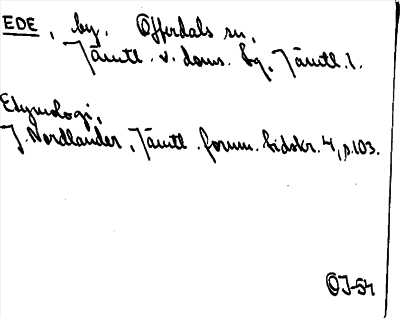 EDE, by. Offerdals sn,
Jämtl. v. doms. bg, Jämtl. l.
Etymologi,
J. Nordlander, Jämtl. fornm. tidskr. 4, p. 103.
OJ-54